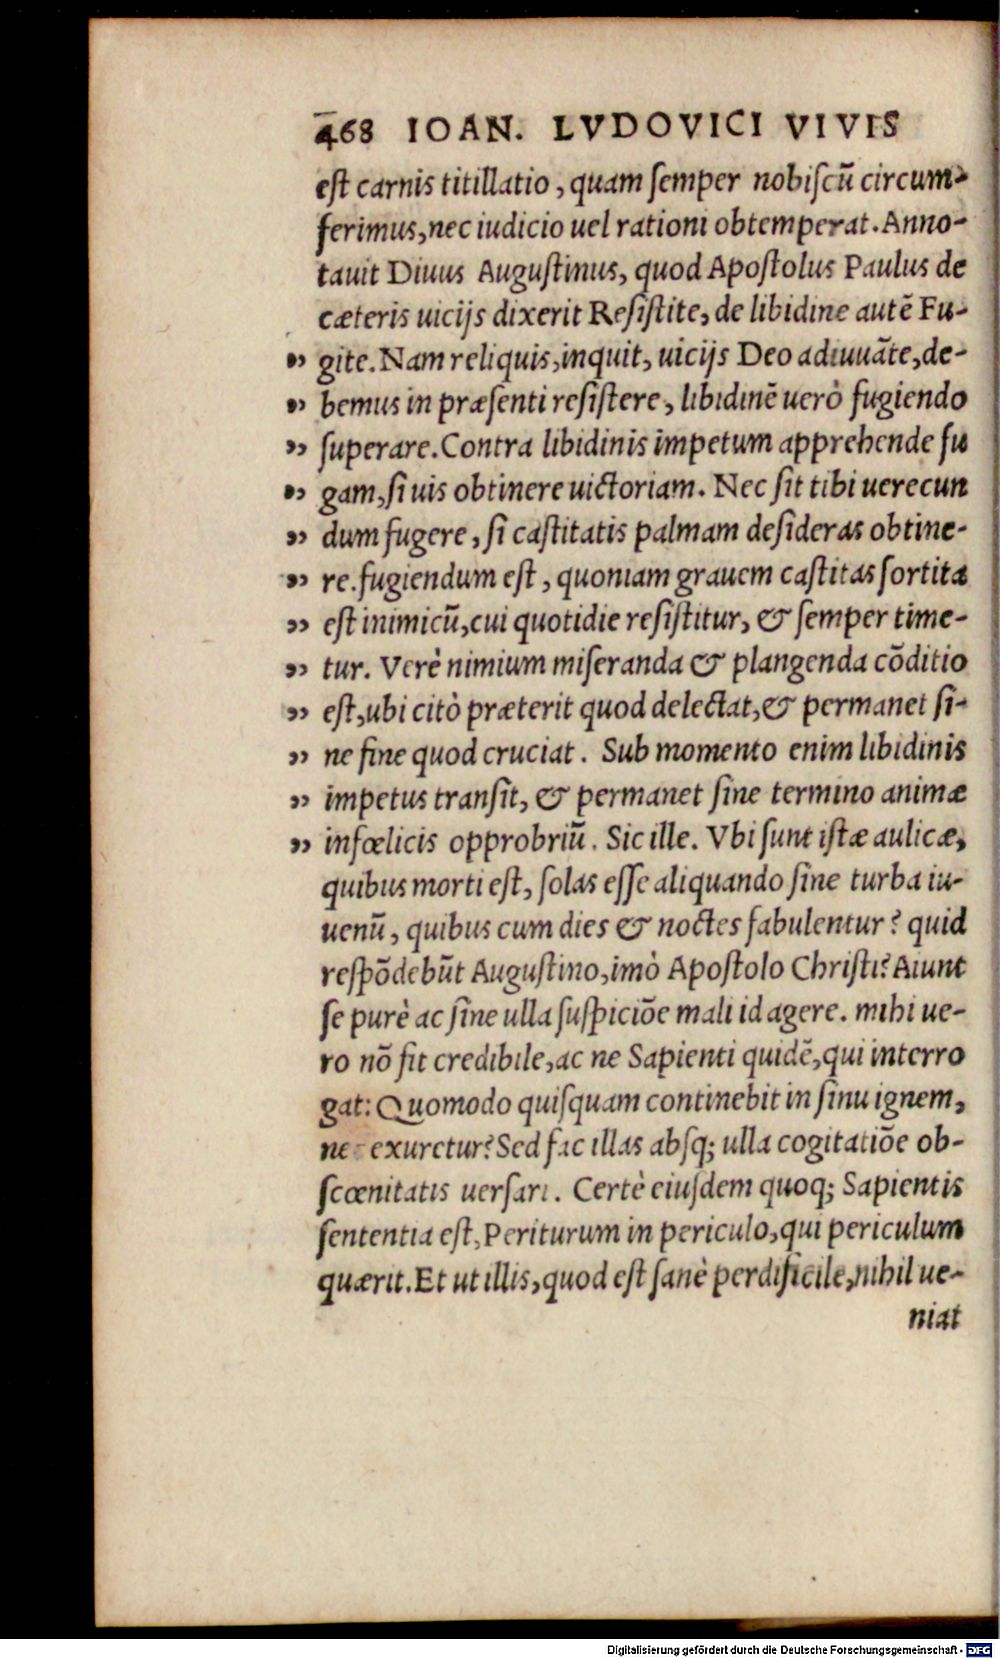 468 IOAN. LVDOVICI VIVIS
est carnis titillatio, quam ſemper nobiſcũ circum-
ferimus, nec iudicio uel rationi obtemperat. Anno-
tauit Diuus Auguſtinus, quod Apoſtolus Paulus de
cæteris uicijs dixerit Reſiſtite, de libidine autẽ Fu-
„ gite. Nam reliquis, inquit, uicijs Deo adiuuãte, de-
„ bemus in præſenti reſiſtere, libidinẽ uerò fugiendo
„ ſuperare. Contra libidinis impetum apprehende fu
„ gam, ſi uis obtinere uictoriam. Nec ſit tibi uerecun
„ dum fugere, ſi caſtitatis palmam deſideras obtine-
„ re. fugiendum eſt, quoniam grauem caſtitas ſortita
„ eſt inimicũ, cui quotidie reſiſtitur, & ſemper time-
„ tur. Verè nimium miſeranda & plangenda cõditio
„ eſt, ubi citò præterit quod delectat, & permanet ſi-
„ ne fine quod cruciat. Sub momento enim libidinis
„ impetus tranſit, & permanet ſine termino animæ
„ infœlicis opprobriũ. Sic ille. Vbi ſunt iſtæ aulicæ,
quibus morti eſt, ſolas eſſe aliquando ſine turba iu-
uenũ, quibus cum dies & noctes fabulentur? quid
reſpõdebũt Auguſtino, imò Apoſtolo Chriſti? Aiunt
ſe purè ac ſine ulla ſuſpiciõe mali id agere. mihi ue-
ro nõ fit credibile, ac ne Sapienti quidẽ, qui interro
gat: Quomodo quiſquam continebit in ſinu ignem,
ne exuretur? Sed fac illas abſq; ulla cogitatiõe ob-
ſcœnitatis uerſari. Certè eiuſdem quoq; Sapientis
ſententia eſt, Periturum in periculo, qui periculum
quærit. Et ut illis, quod eſt ſanè perdificile, nihil ue-
niat
Digitalisierung gefördert durch die Deutsche Forschungsgemeinschaft - DFG